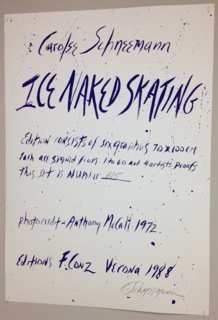 Carolee Schneemann
ICE NAKED SKATING
Edition consists of six graphics 70 x 100 cm
Each are signed from 1 to 60 and 4 artists proofs
This set is Number
photocredit - Anthony McCall 1972
Editions F. Conz Verona 1988